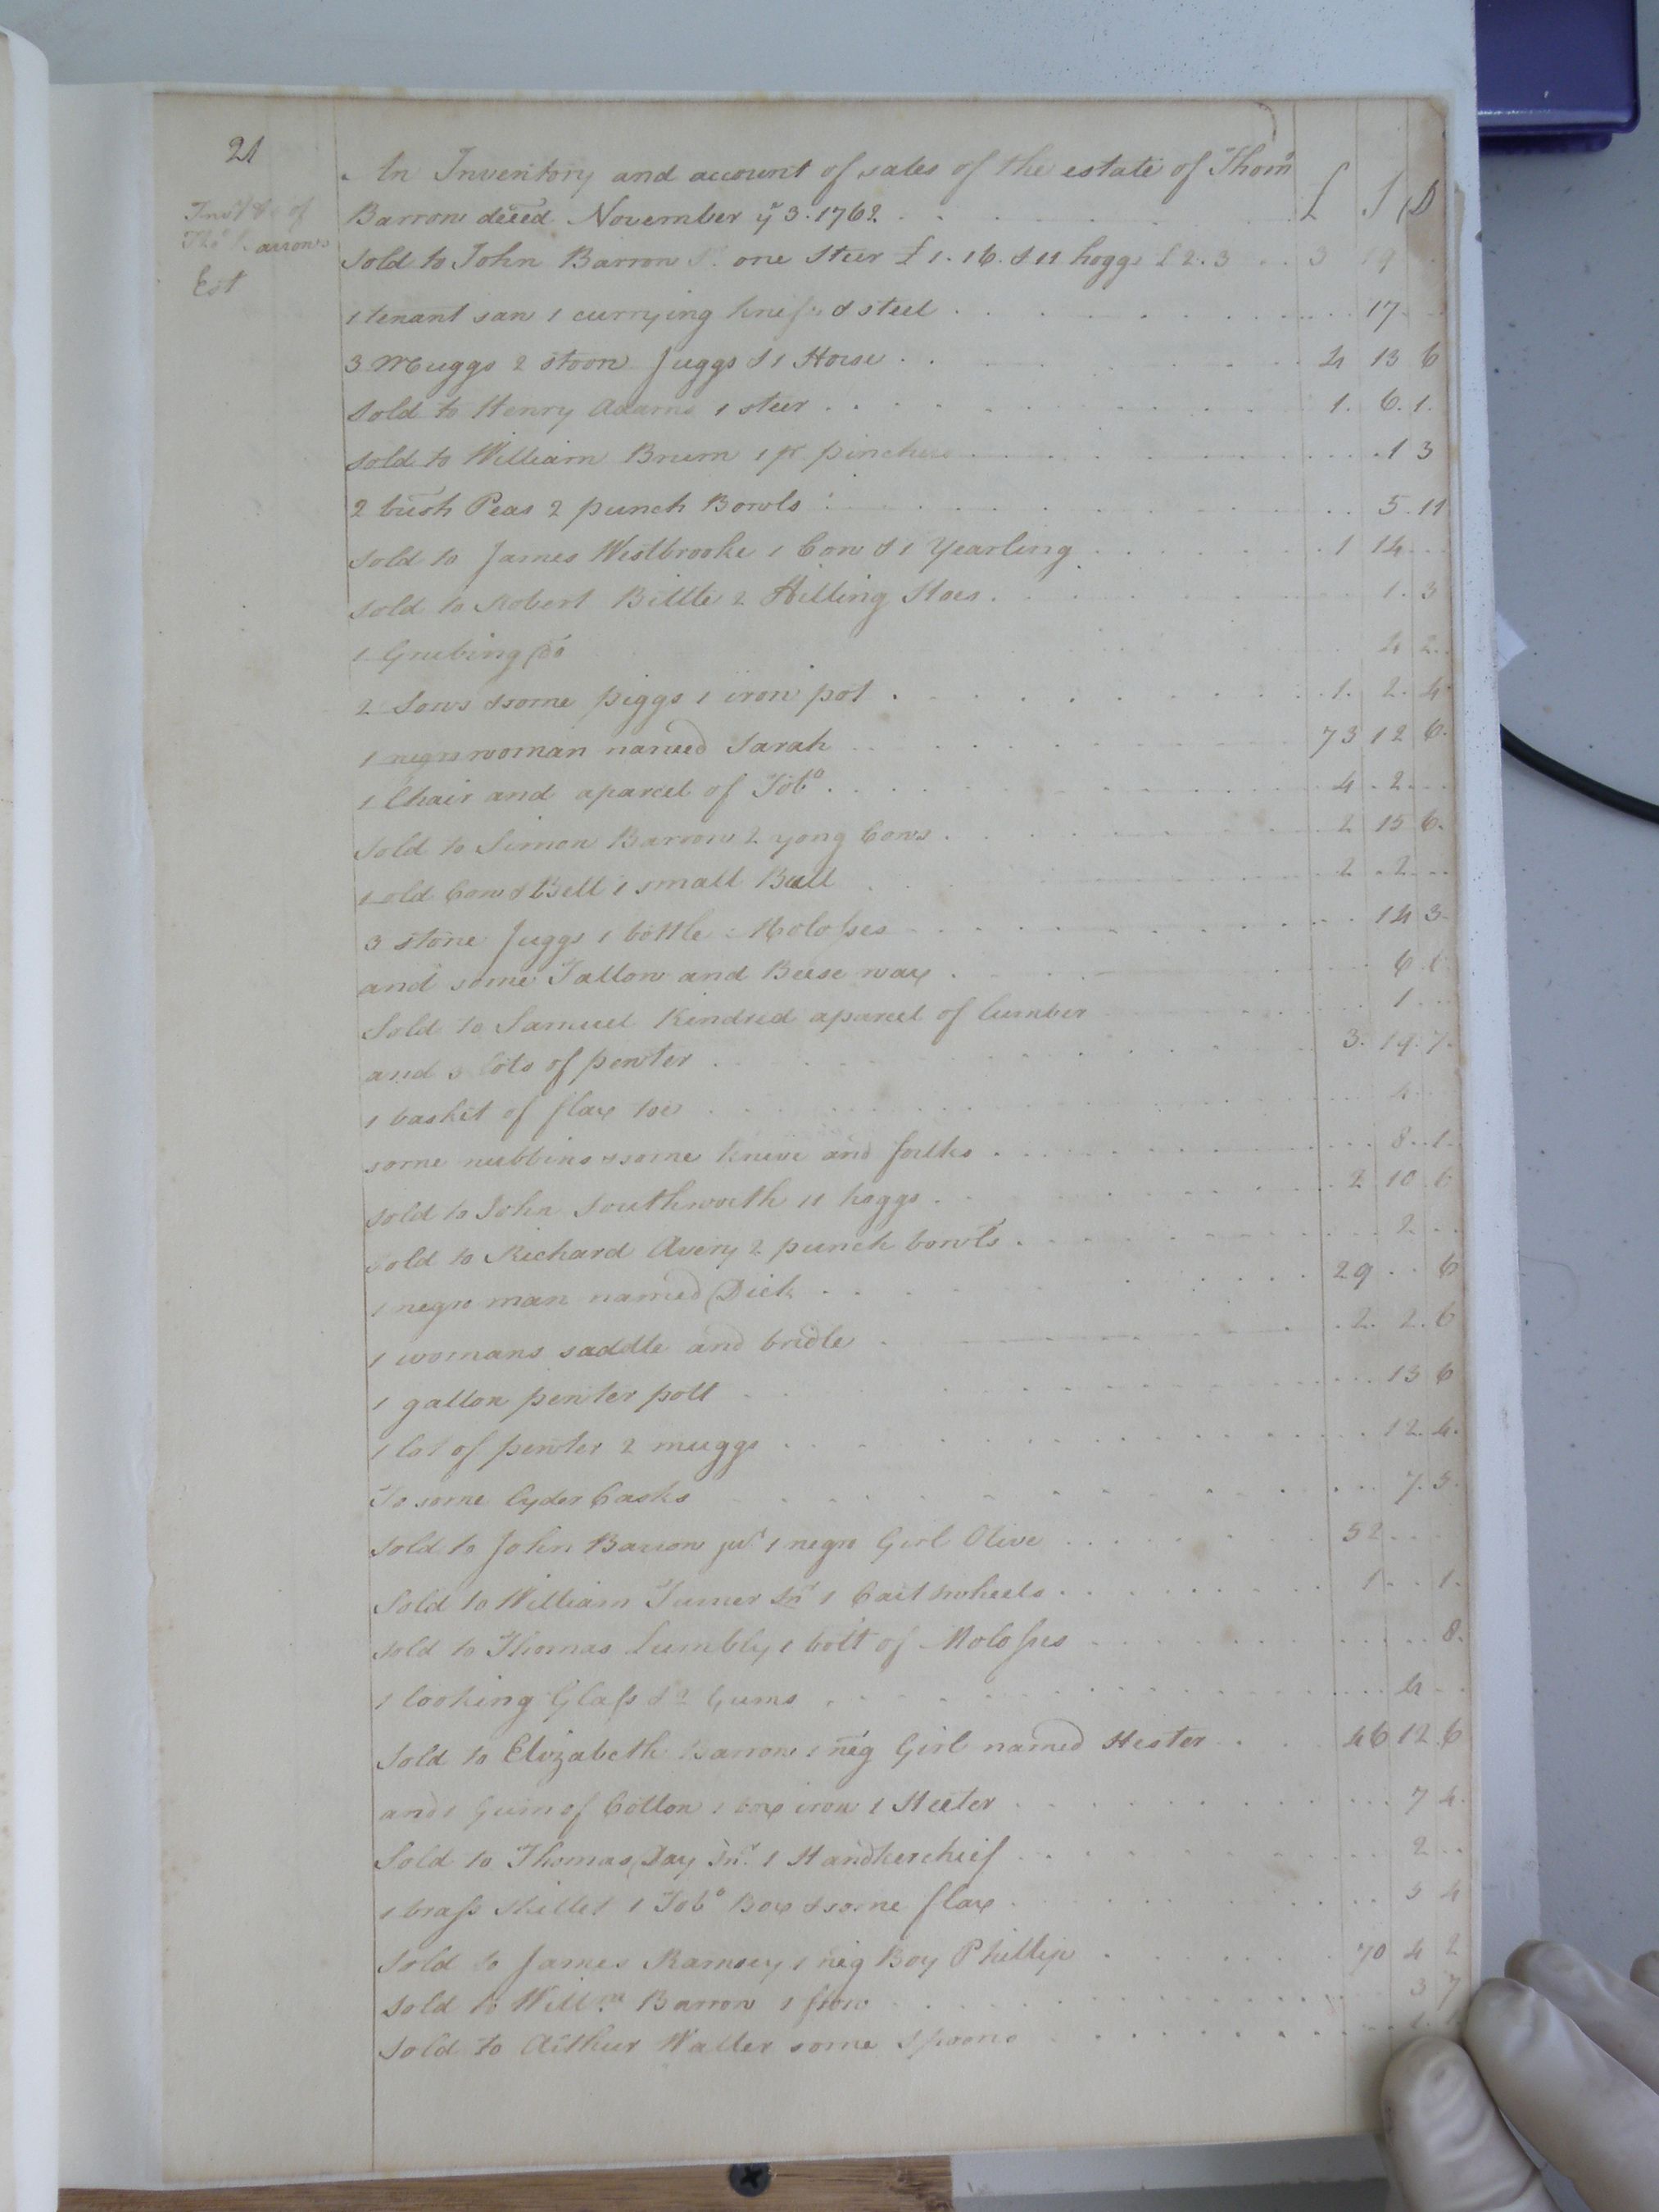 21
Invt &c of
Tho.s Barrows
Est
An Inventory and account of sales of the estate of Thom.s
Barrow deced November ye 3. 1762 . . . £ S D
Sold to John Barrow Sr. one Steer £1.16. & 11 hoggs £2.3 . . 3 19
1 tenant saw 1 currying knife & steel . . . 17
3 Muggs 2 stoon Juggs & 1 Horse . . . 4 13 6
Sold to Henry Adams 1 steer . . . 1. 6. 1.
Sold to William Brum 1 pr. pinchers . . . 1 3
2 bush Peas 2 punch Bowls . . . 5. 11
Sold to James Westbrooke 1 Cow & 1 Yearling . . . 1 14
Sold to Robert Bittle 2 Hilling Hoes . . . 1. 3
1 Grubing Do . . . 4 2
2 Sows & some piggs 1 iron pot . . . 1. 2. 4
1 negro woman named Sarah . . . 73 12 6
1 Chair and a parcel of Tobo . . . 4. 2
Sold to Simon Barrow 2 yong Cows . . . 2 15 6
1 old Cow & Bell 1 small Bull . . . 2. 2
3 stone Juggs 1 bottle Molosses . . . 14 3
and some Tallow and Beese wax . . . 6 1
Sold to Samuel Kindred a parcel of lumber . . . 1
and 3 lots of pewter . . . 3. 19. 7
1 basket of flax tow . . . 4
some nubbins & some knive and forks . . . 8. 1
Sold to John Southworth 11 hoggs . . . 2 10 6
Sold to Richard Avery 2 punch bowls . . . 2
1 negro man named Dick . . . 29 . . 6
1 womans saddle and bridle . . . 2. 2. 6
1 gallon pewter pott . . . 13 6
1 lot of pewter 2 muggs . . . 12. 4.
To some Cyder Casks . . . 7. 5
Sold to John Barrow jur. 1 negro Girl Olive . . . 52
Sold to William Turner Sr. 1 Cart & wheels . . . 1 . . 1
Sold to Thomas Lumbly 1 bott of Molosses . . . 8.
1 looking Glass & 2 Gums . . . 4
Sold to Elizabeth Barrow 1 neg Girl named Hester . . 46 12 6
and 1 Gum of Cotton 1 box iron 1 Heeter . . . 7 4.
Sold to Thomas Day Jnr. 1 Handkerchief . . . 2
1 brass Skillet 1 Tobo Box & some flax . . . 3 4
Sold to James Ramsey 1 neg Boy Phillip . . . 70 4 2
Sold to Willm Barrow 1 frow . . . 3 7
Sold to Arthur Waller some spoons . . .